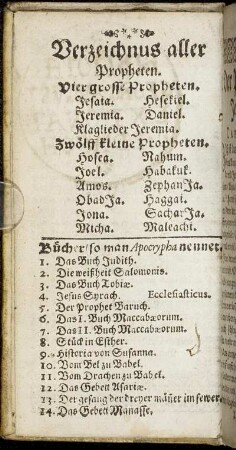 Verzeichnus aller
Propheten.
Vier grosse Propheten.
Jesaia. Hesekiel.
Jeremia. Daniel.
Klaglieder Jeremia.
Zwölff kleine Propheten.
Hosea. Nahum.
Joel. Habakuk.
Amos. ZephanJa.
ObadJa. Haggai.
Jona. SacharJa.
Micha. Maleachi.
Bücher/ so man Apocrypha nennet.
1. Das Buch Judith.
2. Die weißheit Salomonis.
3. Das Buch Tobiæ.
4. Jesus Syrach. Ecclesiasticus.
5. Der Prophet Baruch.
6. Das I. Buch Maccabæorum.
7. Das II. Buch Maccabæorum.
8. Stück in Esther.
9. Historia von Susanna.
10. Vom Bel zu Babel.
11. Vom Drachen zu Babel.
12. Das Gebett Asariæ.
13. Der gesang der dreyer mäñer im fewer.
14. Das Gebett Manasse.